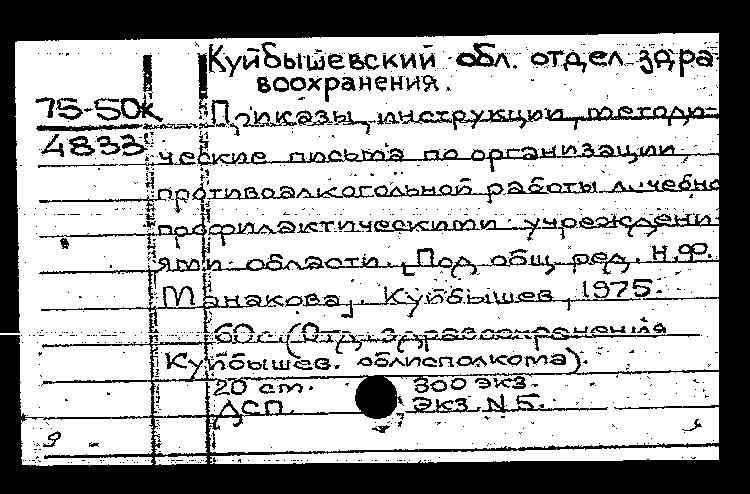 Куйбышевский обл. отдел здра-
воохранения.
75-50к
4833
Приказы, инструкции, методи-
ческие письма по организации
противоалкогольной работы лечебно
профилактическими учреждени-
ями области. [Под общ. ред. Н.Ф.
Манакова]. Куйбышев, 1975.
60с. (Отд. здравоохранения
Куйбышев. облисполкома).
20 см. 300 экз.
ДСП. экз. N 5.